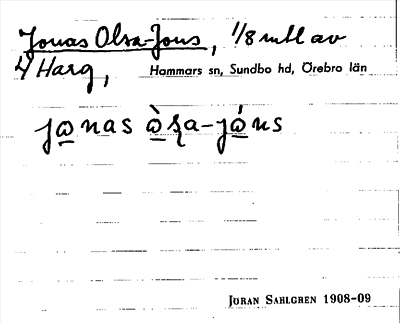 Jonas Olsa-Jons, 1/8 mtl av
4/ Harg, Hammars sn, Sundbo hd, Örebro län
jo̲nas ò̲ʂa-jó̲ns
JÖRAN SAHLGREN 1908-09